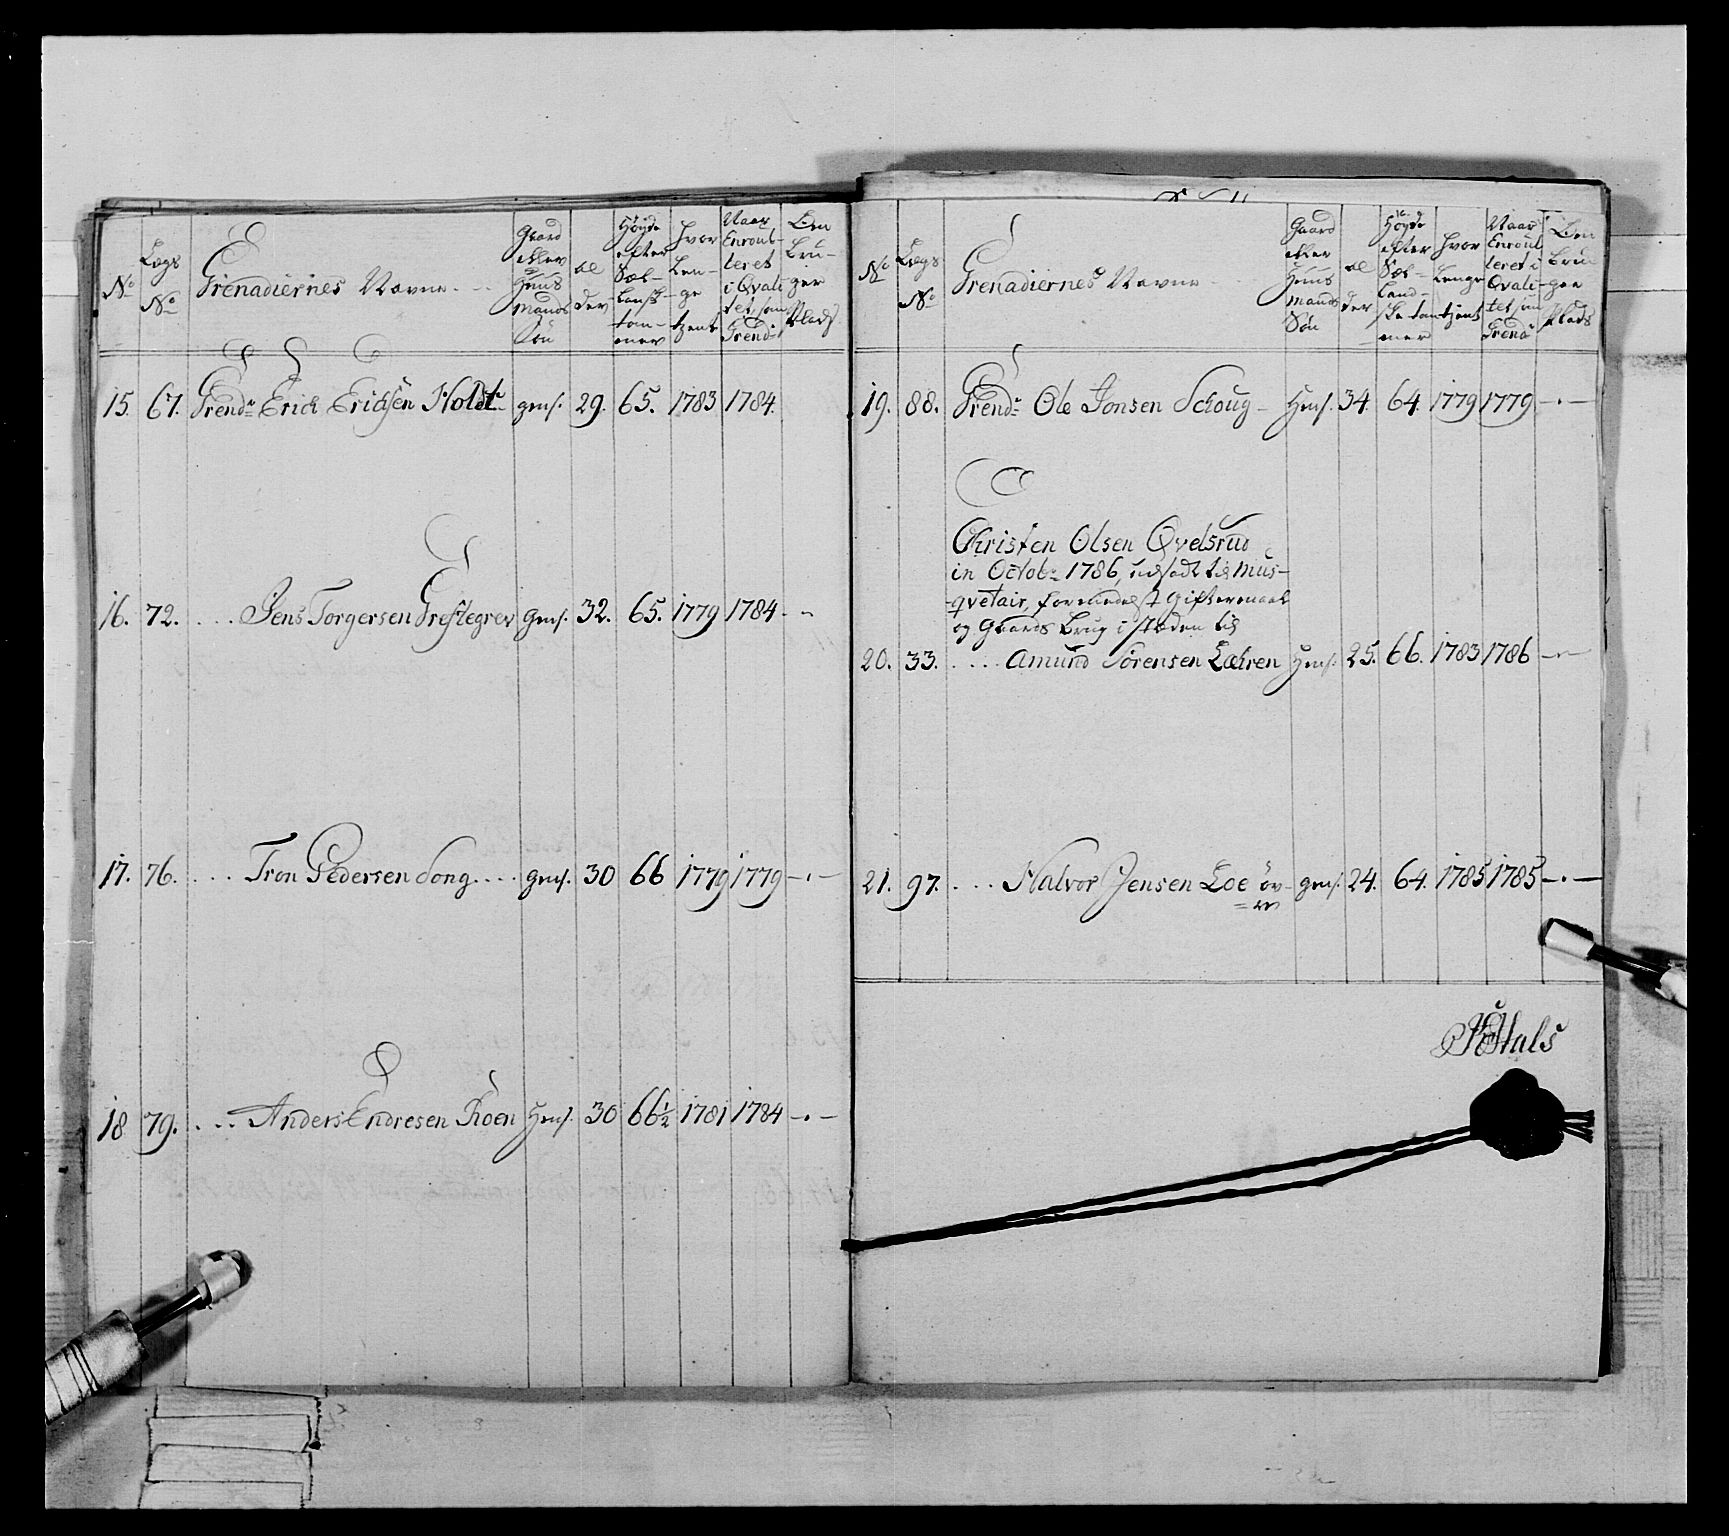 No
Lægs No
Grenadiernes Navne
Gaard eller Huus Mands Søn
Al der
Høyde efter Sæl- landsk tom- mer
Hvor Len- ge tjent
Naar Enroul- leret i Qvali tet som Grendr
Bru- ger Plads
15. 67. Grendr Erich Erichsen Holdt gms. 29. 65. 1783 1784.
16. 72. .... Jens Torgersen Prestegrev gms. 32. 65. 1779 1784 - -
17. 76. .... Tron Pedersen Song .... gms. 30 66 1779 1779 -.-
18 79. .... Anders Endresen Roen Hms. 30 66½ 1781 1784 -.-
No
Lægs No
Grenadiernes Navne
Gaard eller Huus Mands Søn
Al der
Høyde efter Sæl- land- ske tom mer
Hvor Lenge tjent
Naar Enroul leret i Qvali- tet som Grendr
Bru ger Plads
19. 88. Grendr Ole Jonsen Schoug - Hms. 34 64. 1779 1779 -.-
Christen Olsen Qvelsrud
in Octobr 1786, udsadt til Mus-
qvetair, formedelst Giftermaal
og Gaards Brug i stæden til
20. 33. .... Amund Sørensen Læhren Hms. 25. 66. 1783 1786 -.-
21. 97. .... Halvor Jensen Loe öv- gms. 24. 64. 1785 1785 -.-
= re
Hals